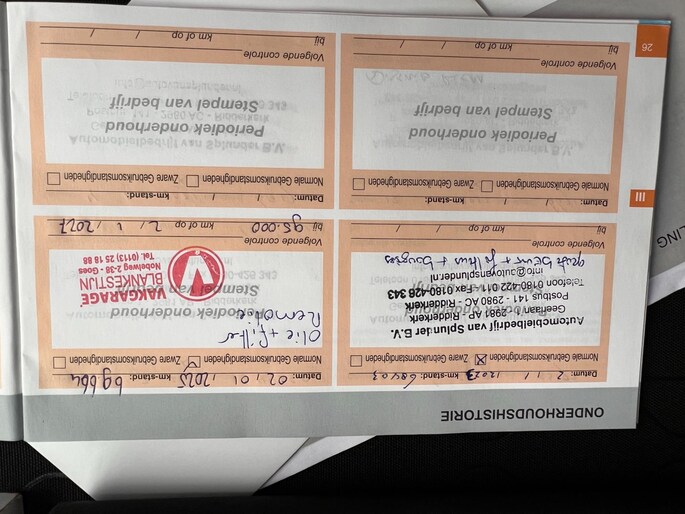 ONDERHOUDSHISTORIE
Datum: 2 / 1 / 2023 km-stand: 68403
Normale Gebruiksomstandigheden Zware Gebruiksomstandigheden
Automobielbedrijf van Splunder B.V.
Geerlaan 2 - 2981 AP - Ridderkerk
Postbus 141 - 2980 AC - Ridderkerk
Telefoon 0180-422 011 - Fax 0180-428 343
info@autovansplunder.nl
Volgende controle
bij / / km of op / /
Datum: 02 / 01 / 2025 km-stand:
Normale Gebruiksomstandigheden Zware Gebruiksomstandigheden
Olie + filter
Periodiek onderhoud
Stempel van bedrijf
VAKGARAGE
BLANKESTIJN
Nobelweg 2-38 - Goes
Tel. (0113) 25 18 88
Volgende controle
bij 95.000 km of op 2 / 1 / 2027
III
Datum: / / km-stand:
Normale Gebruiksomstandigheden Zware Gebruiksomstandigheden
Periodiek onderhoud
Stempel van bedrijf
Volgende controle
bij / / km of op / /
Datum: / / km-stand:
Normale Gebruiksomstandigheden Zware Gebruiksomstandigheden
Periodiek onderhoud
Stempel van bedrijf
Volgende controle
bij / / km of op / /
26
LING